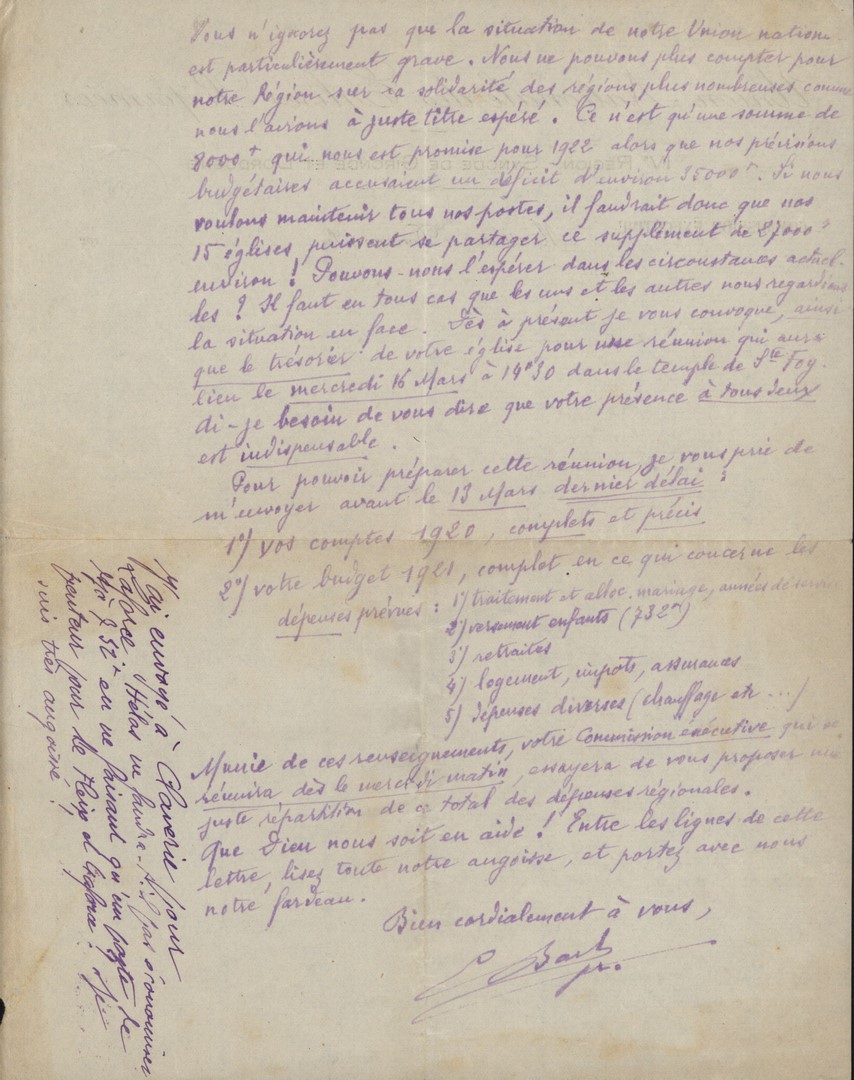 Vous n'ignorez pas que la situation de notre Union nation-
est particulièrement grave. Nous ne pouvons plus compter pour
notre Région sur la solidarité des régions plus nombreuses comme
nous l'avions à juste titre espéré. Ce n'est qu'une somme de
8000f qui nous est promise pour 1922 alors que nos prévisions
budgétaires accusaient un déficit d'environ 35000f. Si nous
voulons maintenir tous nos postes, il faudrait donc que nos
15 églises puissent se partager ce supplément de 27000f
environ ! Pouvons-nous l'espérer dans les circonstances actuel-
les ? Il faut en tous cas que les uns et les autres nous regardions
la situation en face. Dès à présent je vous convoque, ainsi
que le trésorier de votre église pour une réunion qui aura
lieu le mercredi 16 Mars à 14h30 dans le temple de Ste Foy.
di-je besoin de vous dire que votre présence à tous deux
est indispensable.
Pour pouvoir préparer cette réunion, je vous prie de
m'envoyer avant le 13 Mars dernier délai :
1°) vos comptes 1920, complets et précis
2°) votre budget 1921, complet en ce qui concerne les
dépenses prévues : 1°) traitement et alloc. mariage, années de service
2°) versement enfants (732f)
3°) retraites
4°) logement, impots, assurances
5°) dépenses diverses (chauffage etc ...)
Munie de ces renseignements, votre Commission exécutive qui se
réunira dès le mercredi matin, essayera de vous proposer une
juste répartition de ce total des dépenses régionales.
Que Dieu nous soit en aide ! Entre les lignes de cette
lettre, lisez toute notre angoisse, et portez avec nous
notre fardeau.
Bien cordialement à vous,
pr.
J'ai envoyé à Claverie pour
Laforce. Hélas ne faudra-t-il pas économiser
en ne faisant qu'un poste de
pasteur pour le Fleix et Laforce ! Je
suis très angoissé !